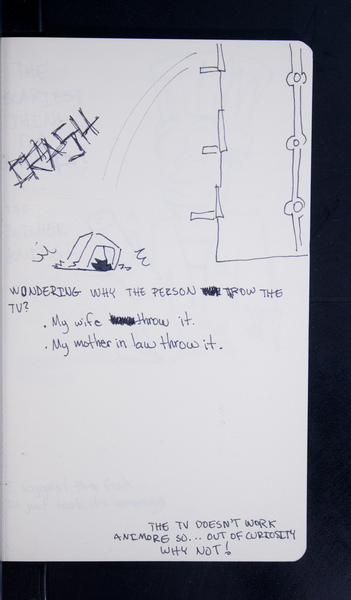 CRASH
WONDERING WHY THE PERSON TROW THE
TV?
. My wife throw it.
. My mother in law throw it.
THE TV DOESN'T WORK
ANIMORE SO... OUT OF CURIOSITY
WHY NOT!